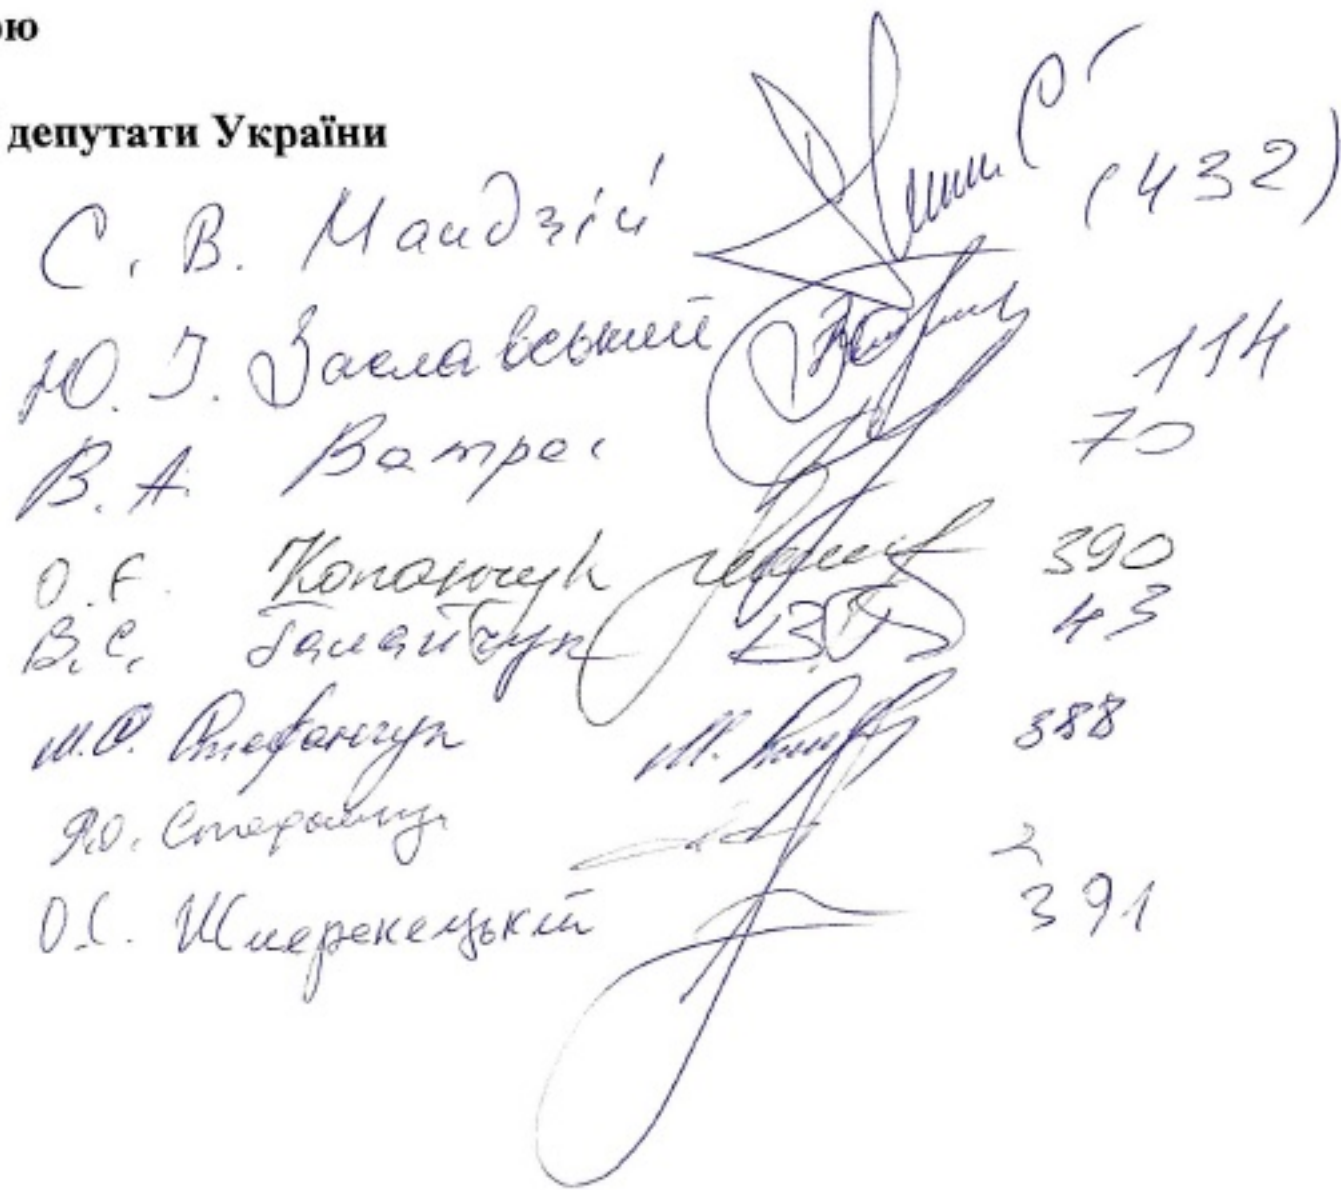 ою
депутати України
С. В. Мандзій (432)
Ю. І. Заславський 114
В. А. Ватрас 70
О. Є. Копанчук 390
В. С. Галайчук 43
М. О. Стефанчук М. 388
Р. О. Стефанчук 2
О. С. 391